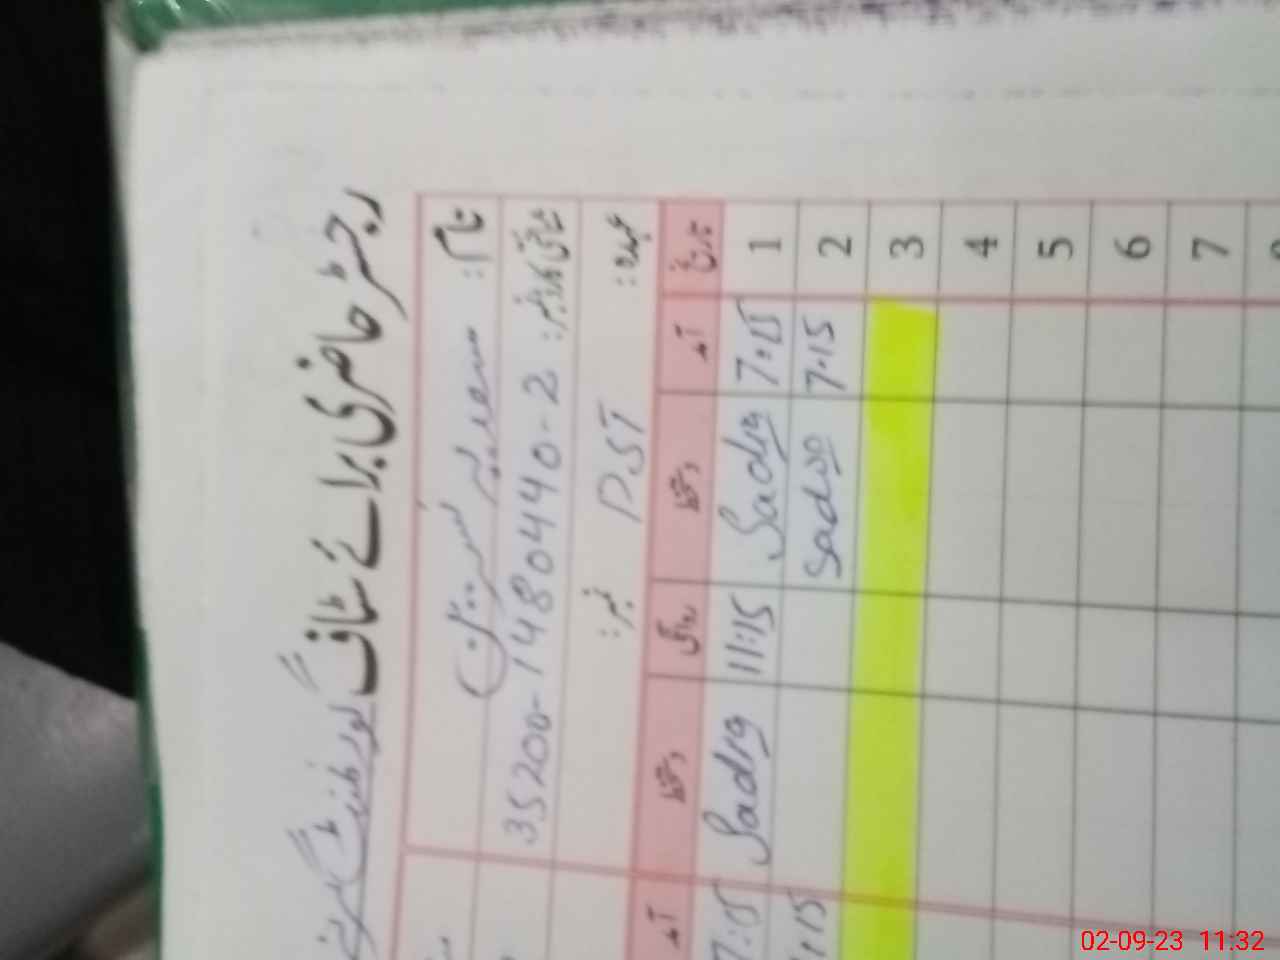 رجسٹر حاضری برائے سٹاف گورنمنٹ گرلز
نام:
شناختی کارڈ نمبر: 35200-1480440-2
عہدہ: PST نمبر:
تاریخ آمد دستخط روانگی دستخط آمد
1 7:15 Sadiq 11:15 Sadiq 7:15
2 7:15 Sadiq
3
4
5
6
7
02-09-23 11:32